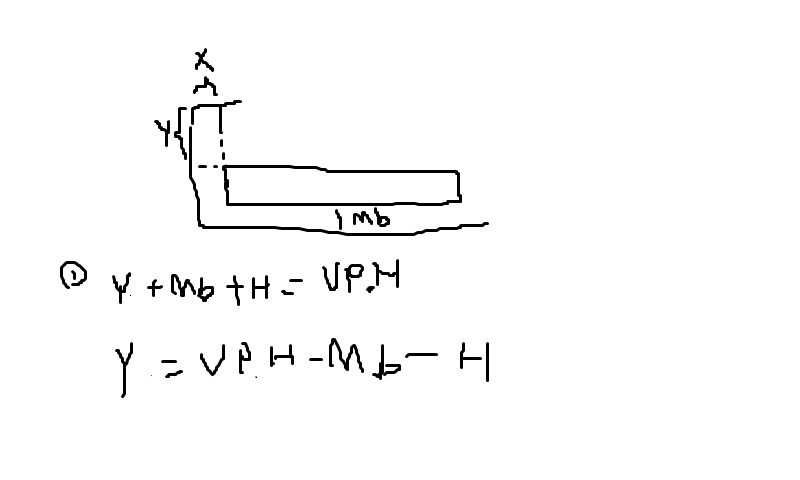 X
Y
Mb
① Y + Mb + H = VP.H
Y = VP.H - Mb - H